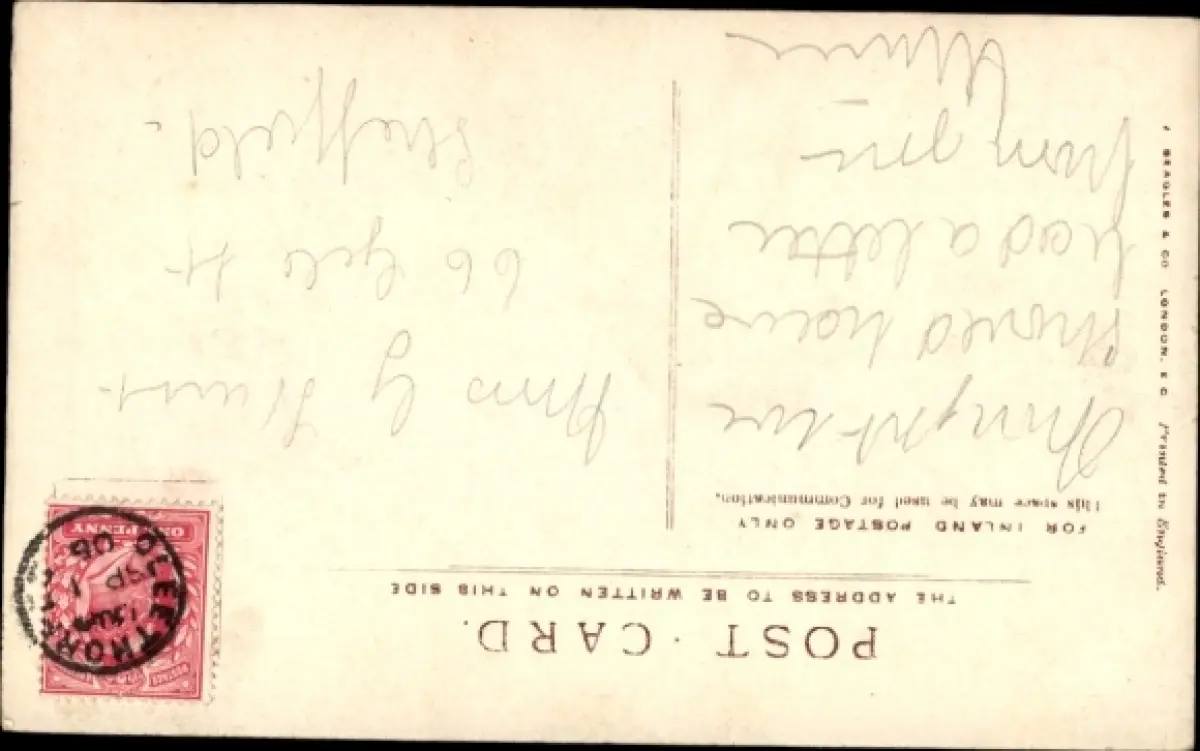 POST CARD.
THE ADDRESS TO BE WRITTEN ON THIS SIDE
FOR INLAND POSTAGE ONLY
This space may be used for Communication.
Thought we
should have
had a letter
from you
Mrs G Hunt
66 Gell St
Sheffield.
BEAGLES & CO LONDON. E C Printed in England.
ONE PENNY
CLEETHORPES
SP 1